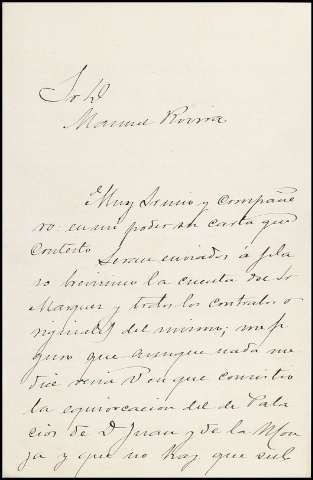 Sr D
Manuel Rovira
Muy Sr mio y compañe
ro: en mi poder su carta que
contesto
Seran enviados á
la cuenta del Sr
Marques y todos los contratos o
riginales del mismo;
que aunque nada me
dice V en que consistio
la equivocacion del de Pala
cios de D Juan y de la Mon
ja y que no hay que sub